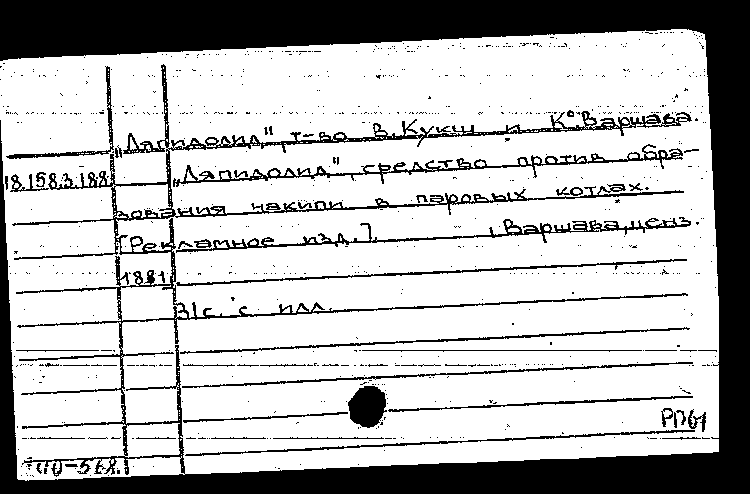 „Ляпидолид", т-во В. Кукш и К°. Варшава.
18.158.3.188 „Ляпидолид", средство против обра-
зования накипи в паровых котлах.
[Рекламное изд.]. Варшава, ценз.
1881.
31 с. с илл.
РП61
40-568.